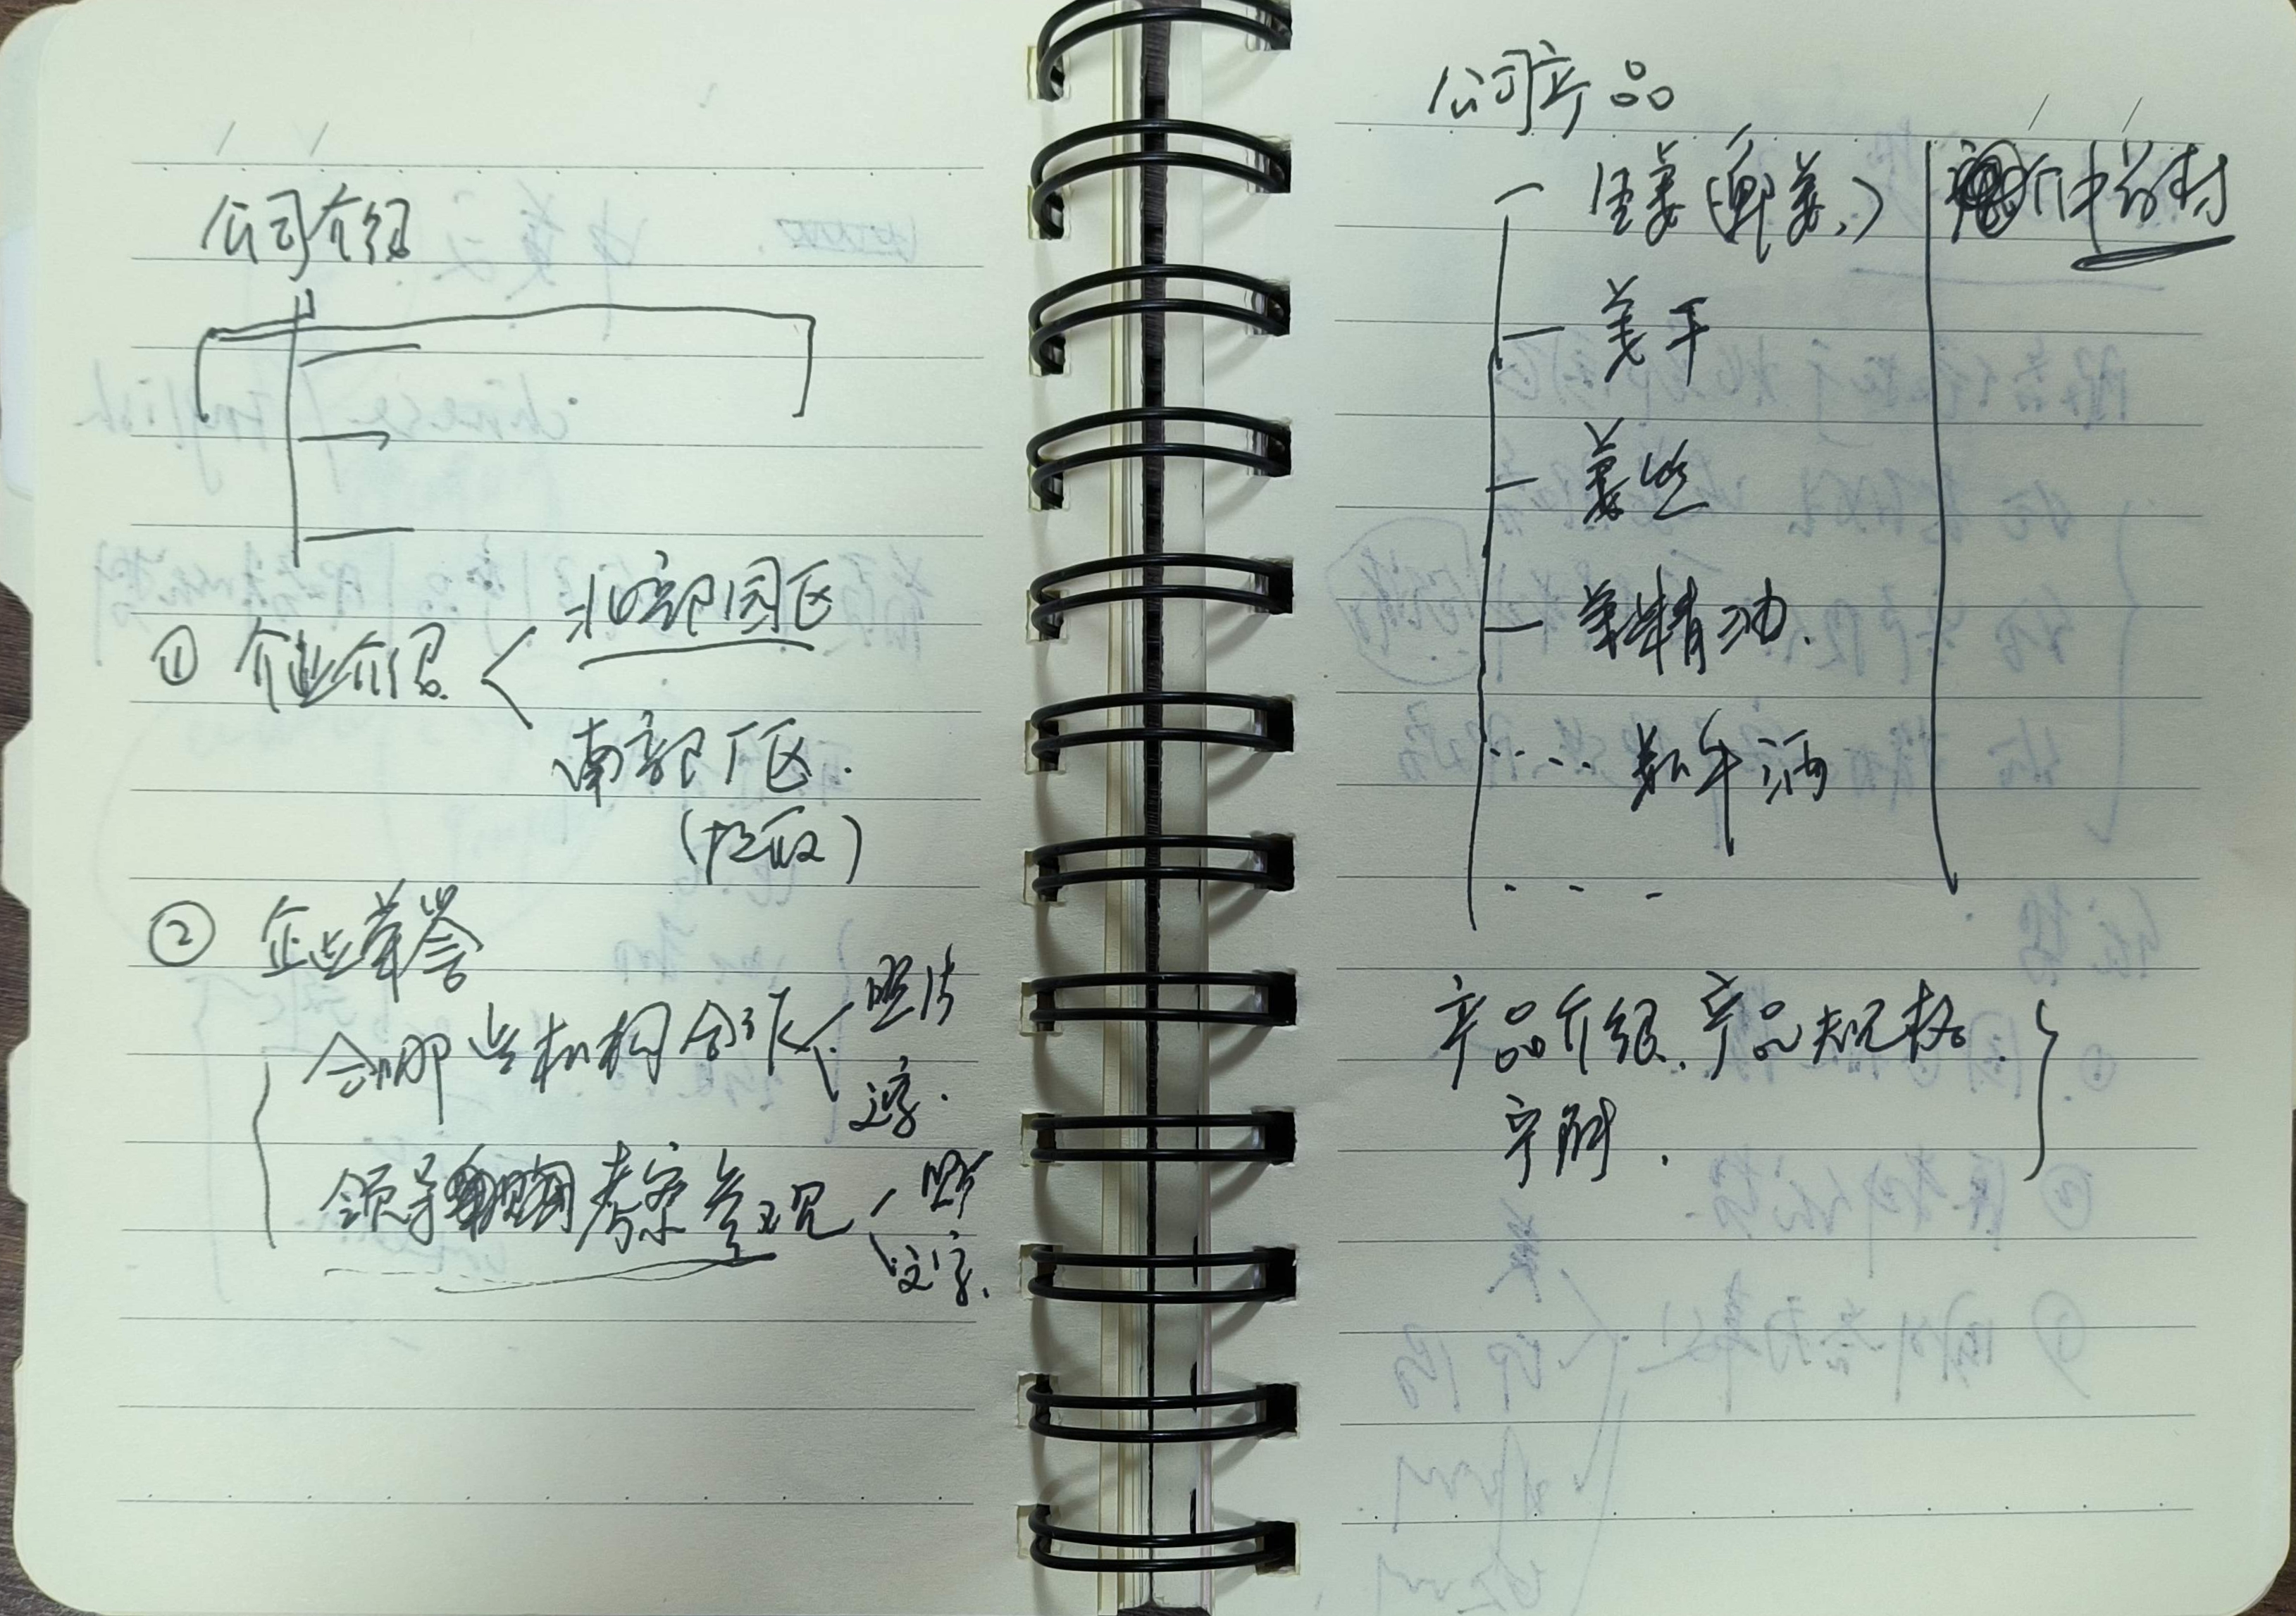 公司介绍
① 企业介绍
北部园区
南部厂区.
(提取)
② 企业荣誉
合哪些机构合作
照片
文字.
领导 考察参观
照片
文字.
公司产品
生姜(鲜姜、)
中药材
姜干
姜丝
姜精油.
....
产品介绍、产品规格.